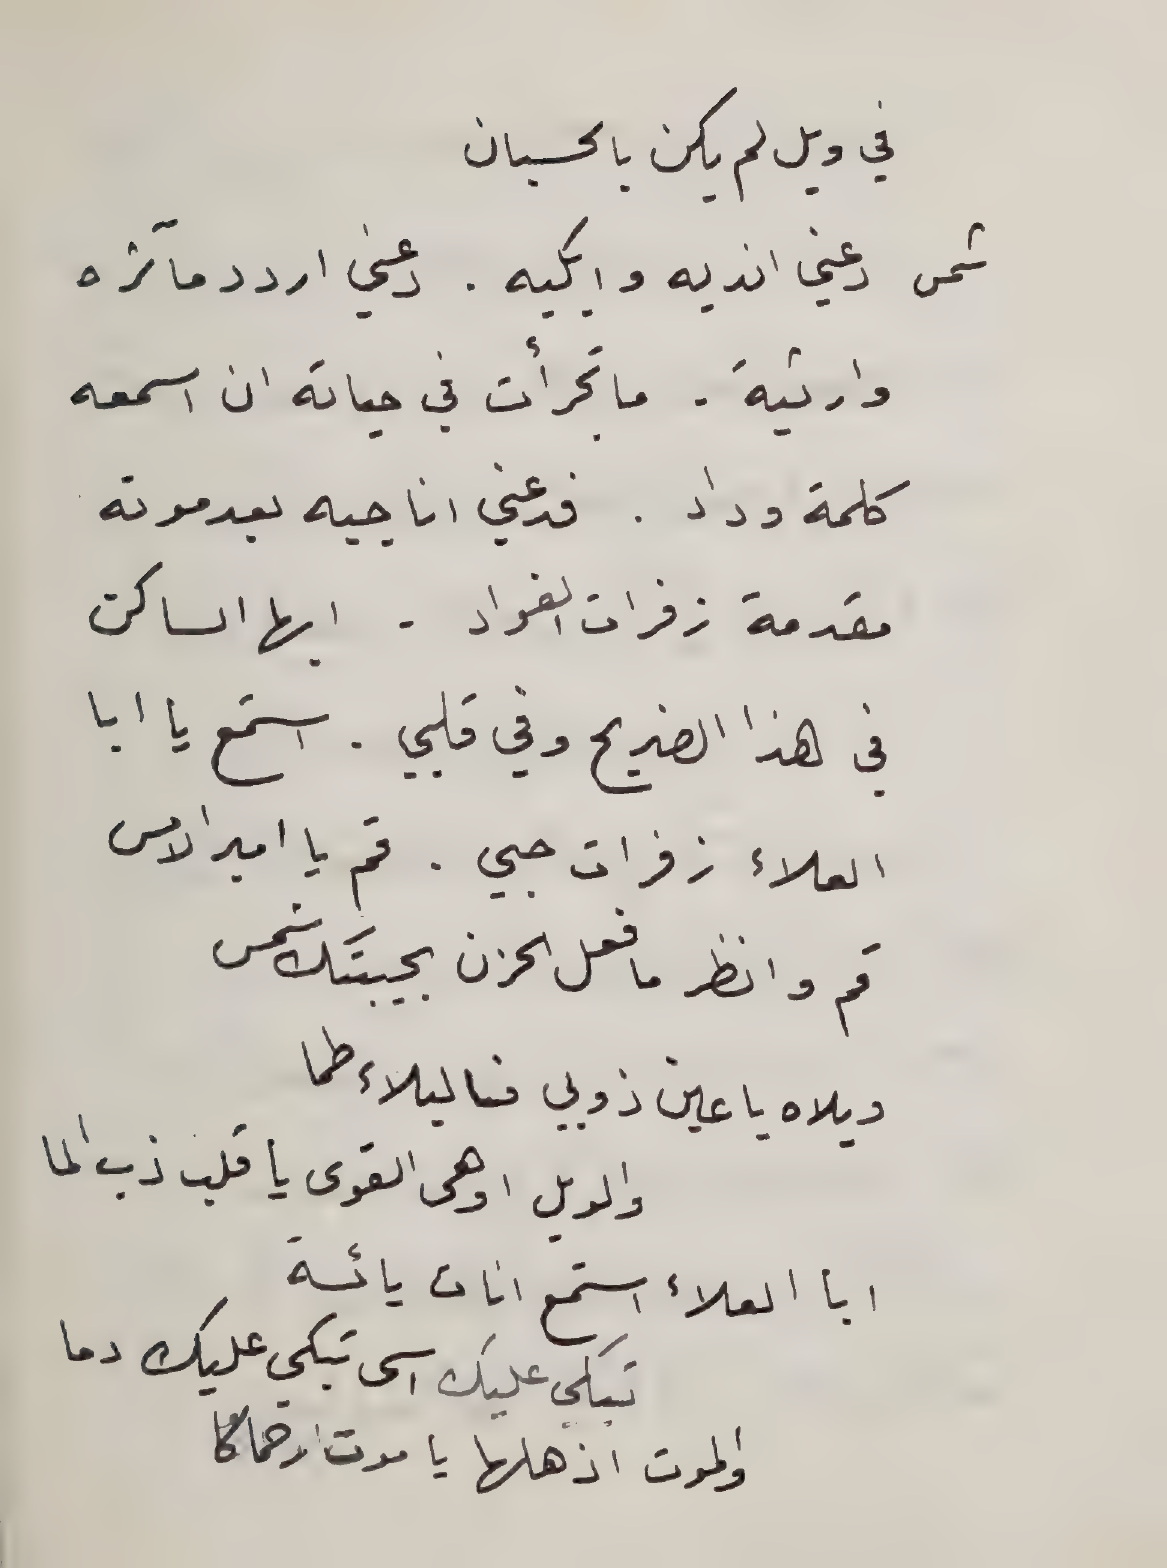 في ويل لم يكن بالحسبان
شمس دعني اندبه وابكيه . دعني اردد مآثره
وارثيه . ما تجرأت في حياته ان اسمعه
كلمة وداد . فدعني اناجيه بعد موته
مقدمة زفرات الفواد . ايها الساكن
في هذا الضريح وفي قلبي . استمع يا ابا
العلاء زفرات حبي . قم يا امير الامس
قم وانظر ما فعل الحزن بحبيبتك شمس
ويلاه يا عين ذوبي فالبلاء طما
والويل اوهى القوى يا قلب ذب الما
ابا العلاء استمع انات يائسة
تبكي عليك اسى تبكي عليك دما
والموت اذهلها يا موت